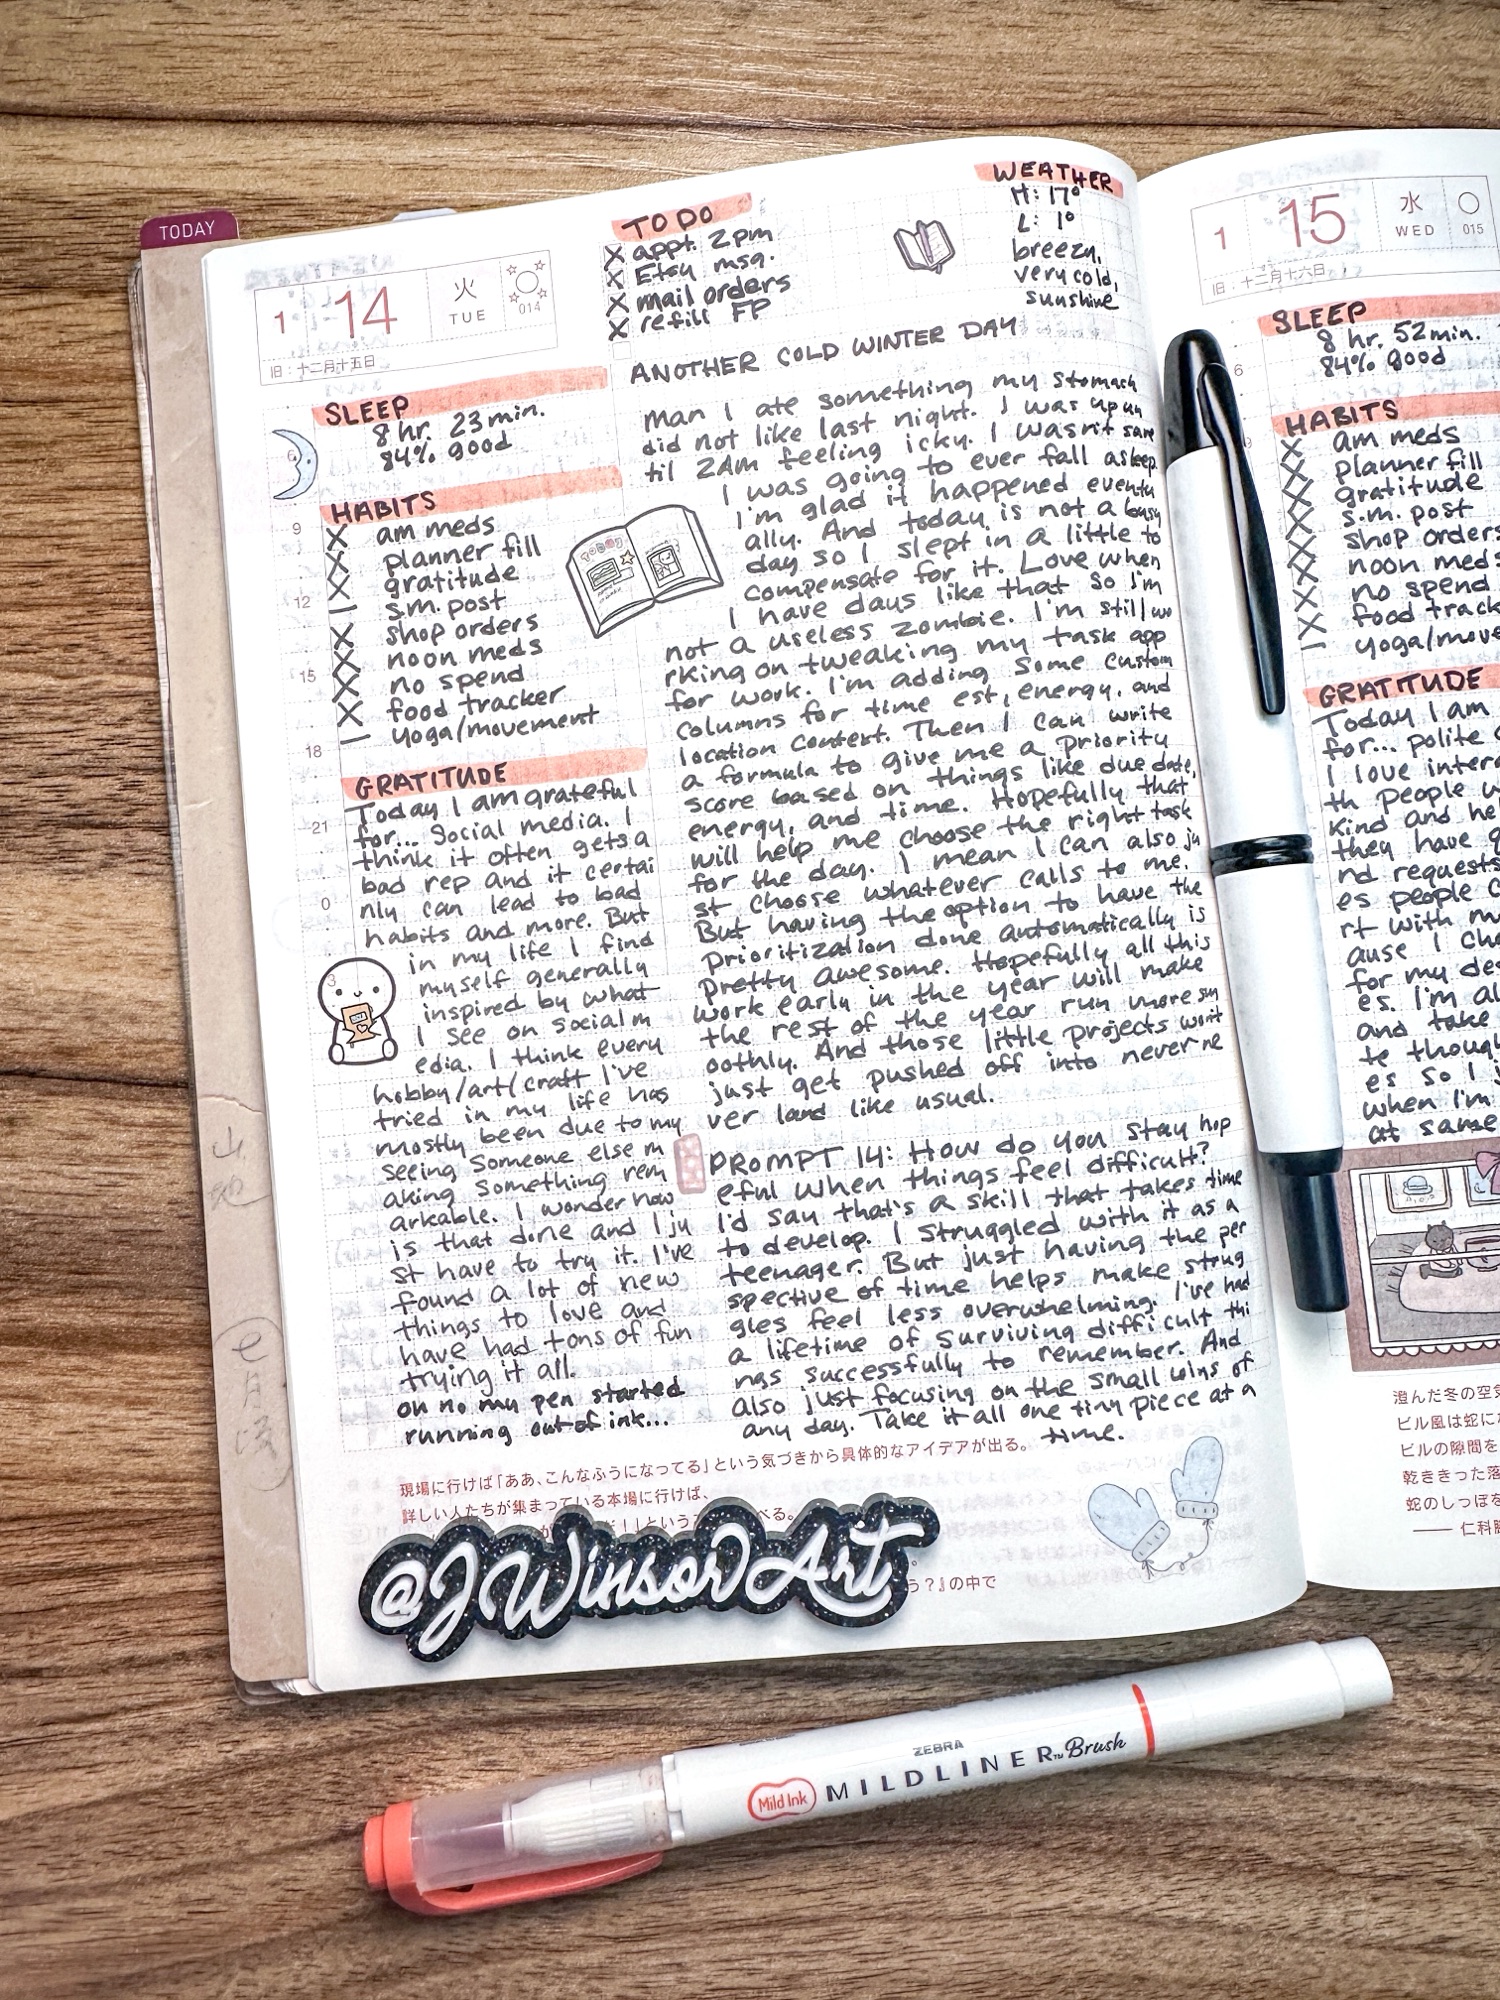 TODAY
1 14 火 TUE 014
旧:十二月十五日
TO DO
X appt. 2pm
X Etsy msg.
X mail orders
X refill FP
WEATHER
H: 17°
L: 1°
breezy,
very cold,
sunshine
SLEEP
8 hr. 23 min.
84% good
HABITS
X am meds
X planner fill
X gratitude
— s.m. post
X shop orders
X noon meds
X no spend
X food tracker
— yoga/movement
6
9
12
15
18
21
0
3
GRATITUDE
Today I am grateful
for... Social media. I
think it often gets a
bad rep and it certai
nly can lead to bad
habits and more. But
in my life I find
myself generally
inspired by what
I see on social m
edia. I think every
hobby/art/craft I've
tried in my life has
mostly been due to my
seeing someone else m
aking something rem
arkable. I wonder how
is that done and I ju
st have to try it. I've
found a lot of new
things to love and
have had tons of fun
trying it all.
oh no my pen started
running out of ink...
ANOTHER COLD WINTER DAY
Man I ate something my stomach
did not like last night. I was up un
til 2AM feeling icky. I wasn't sure
I was going to ever fall asleep.
I'm glad it happened eventu
ally. And today is not a busy
day so I slept in a little to
compensate for it. Love when
I have days like that so I'm
not a useless zombie. I'm still wo
rking on tweaking my task app
for work. I'm adding some custom
columns for time est, energy, and
location context. Then I can write
a formula to give me a priority
score based on things like due date,
energy, and time. Hopefully that
will help me choose the right task
for the day. I mean I can also ju
st choose whatever calls to me.
But having the option to have the
prioritization done automatically is
pretty awesome. Hopefully all this
work early in the year will make
the rest of the year run more sm
oothly. And those little projects won't
just get pushed off into never ne
ver land like usual.
PROMPT 14: How do you stay hop
eful when things feel difficult?
I'd say that's a skill that takes time
to develop. I struggled with it as a
teenager. But just having the per
spective of time helps make strug
gles feel less overwhelming. I've had
a lifetime of surviving difficult thi
ngs successfully to remember. And
also just focusing on the small wins of
any day. Take it all one tiny piece at a
time.
現場に行けば「ああ、こんなふうになってる」という気づきから具体的なアイデアが出る。
詳しい人たちが集まっている本場に行けば、
う?』の中で
@JWinsorArt
1 15 水 WED 015
旧:十二月十六日
SLEEP
8 hr. 52 min.
84% good
HABITS
X am meds
X planner fill
X gratitude
X s.m. post
X shop orders
X noon meds
X no spend
X food track
— yoga/move
6
GRATITUDE
Today I am
for... polite
I love inter
th people w
kind and he
they have q
nd requests
es people c
rt with m
ause I cho
for my des
es. I'm al
and take
te though
es so I j
when I'm
at same
澄んだ冬の空気
ビル風は蛇に
ビルの隙間を
乾ききった落
蛇のしっぽを
—— 仁科
ZEBRA
Mild Ink MILDLINER™ Brush